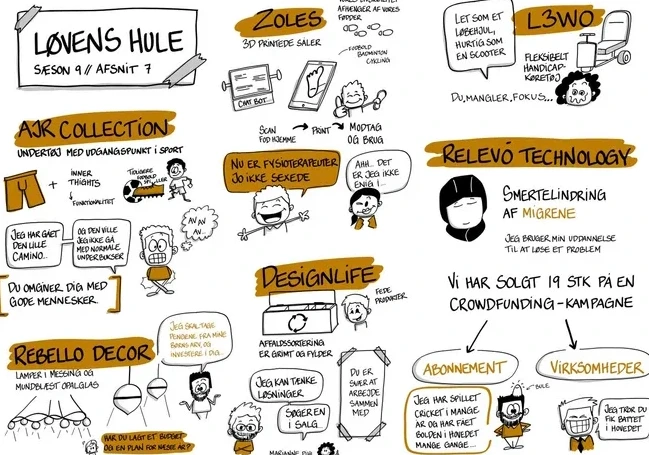 LØVENS HULE
SÆSON 9 // AFSNIT 7
AJR COLLECTION
UNDERTØJ MED UDGANGSPUNKT I SPORT
+
INNER
THIGHTS
↓
FUNKTIONALITET
TIDLIGERE
FODBOLD
SPILLER
JEG HAR GÅET
DEN LILLE
CAMINO..
OG DEN VILLE
JEG IKKE GÅ
MED NORMALE
UNDERBUKSER
AV AV
AV...
DU OMGIVER DIG MED
GODE MENNESKER.
REBELLO DECOR
LAMPER I MESSING OG
MUNDBLÆST OPALGLAS
JEG SKAL TAGE
PENGENE FRA MINE
BARNS ARV, OG
INVESTERE I DIG...
HAR DU LAGT ET BUDGET
OG EN PLAN FOR NÆSTE ÅR?
ZOLES
3D PRINTEDE SÅLER
AFHÆNGER AF VORES
FØDDER
FODBOLD
BADMINTON
CYKLING
CHAT BOT
SCAN
FOD HJEMME
→ PRINT →
MODTAG
OG BRUG
NU ER FYSIOTERAPEUTER
JO IKKE SEXEDE
AHH.. DET
ER JEG IKKE
ENIG I...
DESIGNLIFE
AFFALDSSORTERING
ER GRIMT OG FYLDER
FEDE
PRODUKTER
JEG KAN TÆNKE
LØSNINGER
SØGER EN
I SALG..
DU ER
SVÆR AT
ARBEJDE
SAMMEN
MED
MARIANNE DUR
L3WO
LET SOM ET
LØBEHJUL,
HURTIG SOM
EN SCOOTER
FLEKSIBELT
HANDICAP-
KØRETØJ
DU, MANGLER, FOKUS...
RELEVÓ TECHNOLOGY
SMERTELINDRING
AF MIGRENE
JEG BRUGER MIN UDDANNELSE
TIL AT LØSE ET PROBLEM
VI HAR SOLGT 19 STK PÅ EN
CROWDFUNDING-KAMPAGNE
ABONNEMENT
VIRKSOMHEDER
JEG HAR SPILLET
CRICKET I MANGE
ÅR OG HAR FÅET
BOLDEN I HOVEDET
MANGE GANGE....
BULE
JEG TROR DU
FIK BATTET
I HOVEDET